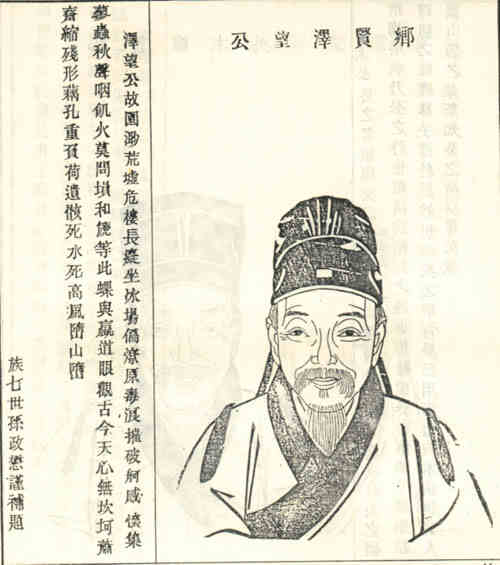 鄉賢澤望公
澤望公故園渺荒墟危樓長坐冰場偽潦原毒浸摧破舸感懷集
夢蟲秋聲咽飢火莫問墳和篪等此蜾與蠃道眼觀古今天心無坎坷蕭
齋縮殘形藕孔重負荷遺骸死水死高風墮山墮
族七世孫政懋謹補題